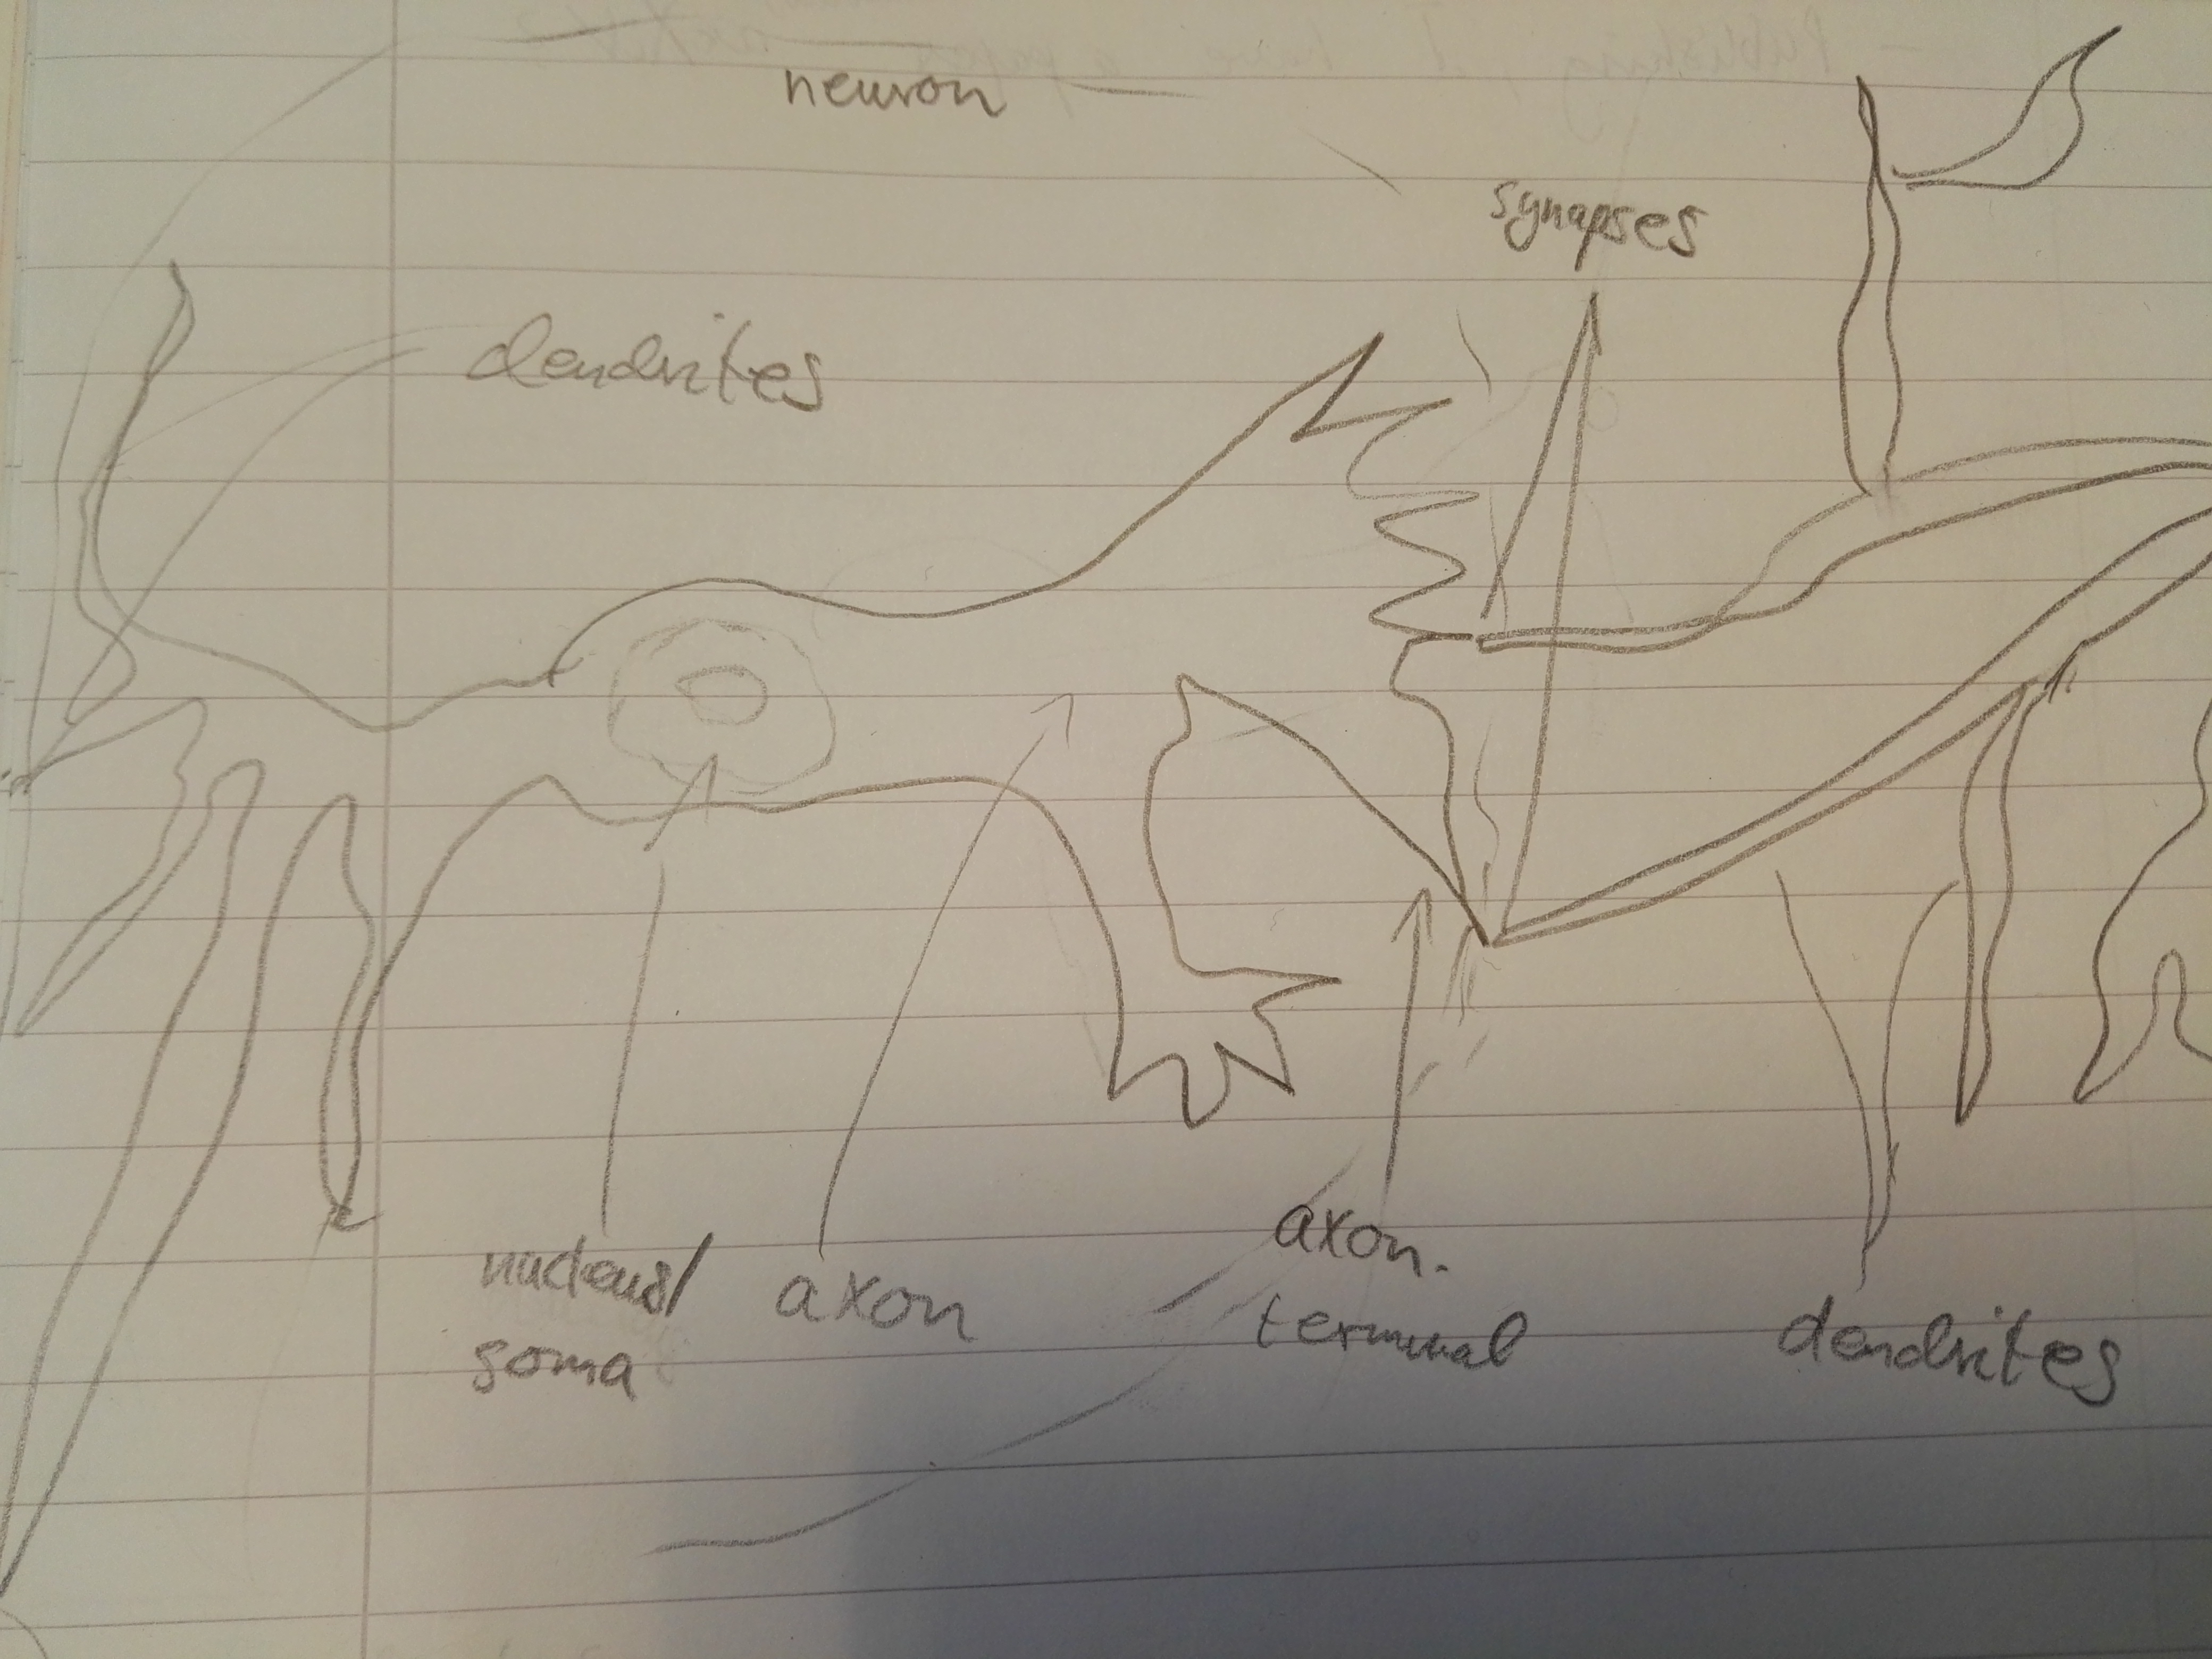 neuron
synapses
dendrites
nucleus/
soma
axon
axon.
terminal
dendrites